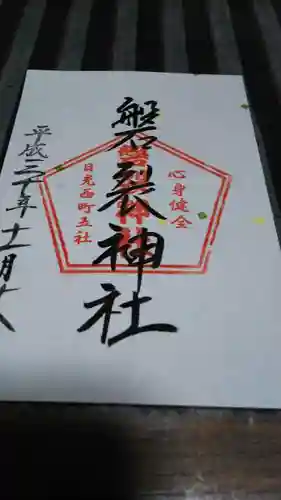 心身健全
磐裂神社
磐裂神社
日光西町五社
平成三十年十一月